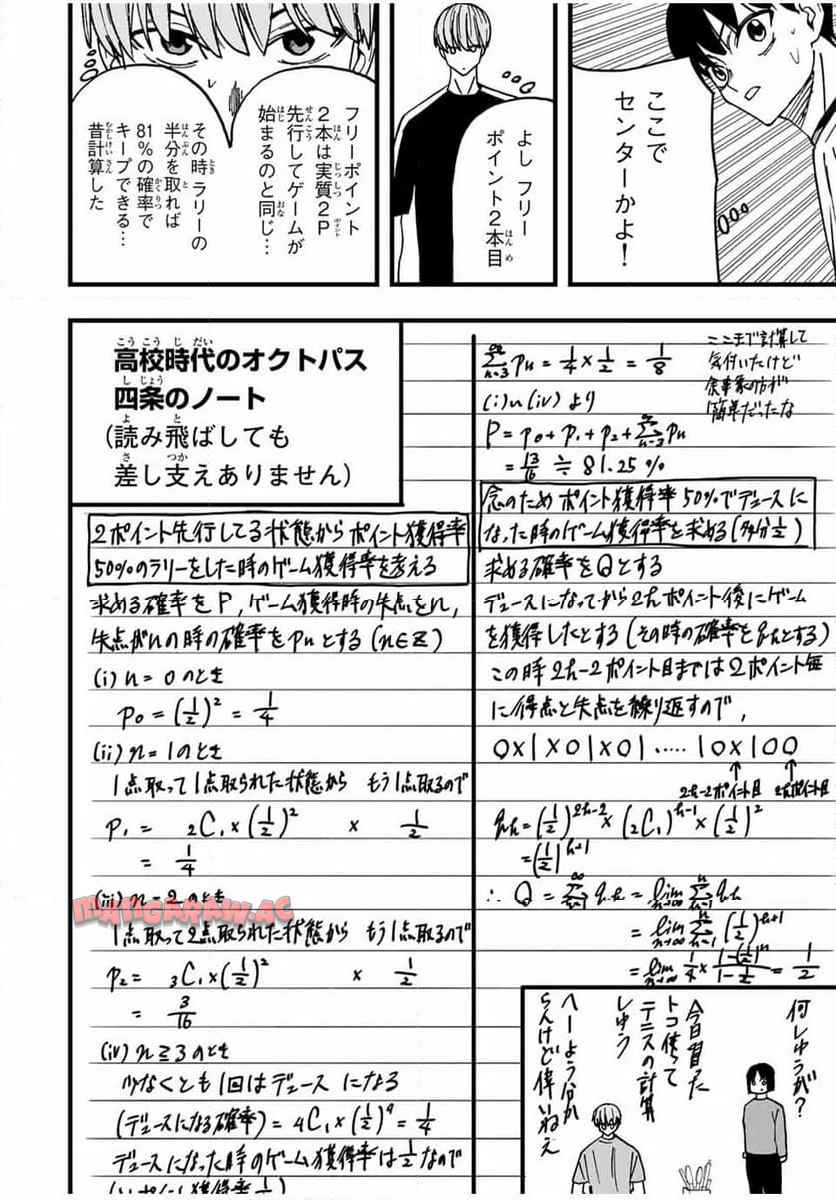 ここで
センターかよ！
よし フリー
ポイント2本目
フリーポイント
2本は実質2P
先行してゲームが
始まるのと同じ…
その時ラリーの
半分を取れば
81％の確率で
キープできる…
昔計算した
高校時代のオクトパス
四条のノート
（読み飛ばしても
差し支えありません）
2ポイント先行してる状態からポイント獲得率
50%のラリーをした時のゲーム獲得率を考える
求める確率をP,ゲーム獲得時の失点をn,
失点がnの時の確率をpnとする(n∈Z)
(i) n=0のとき
p0=(1/2)^2=1/4
(ii) n=1のとき
1点取って1点取られた状態から もう1点取るので
p1= 2C1×(1/2)^2 × 1/2
=1/4
(iii) n=2のとき
1点取って2点取られた状態から もう1点取るので
p2= 3C1×(1/2)^2 × 1/2
=3/16
(iv) n≧3のとき
少なくとも1回はデュースになる
(デュースになる確率)=4C1×(1/2)^4=1/4
デュースになった時のゲーム獲得率は1/2なので
∞Σn=3 pn=1/4×1/2=1/8
ここまで計算して
気付いたけど
余事象の方が
簡単だったな
(i)∪(iv)より
P=p0+p1+p2+∞Σn=3 pn
=13/16≒81.25%
念のためポイント獲得率50%でデュースに
なった時のゲーム獲得率を求める(多分1/2)
求める確率をQとする
デュースになってから2kポイント後にゲーム
を獲得したとする(その時の確率をqkとする)
この時2k-2ポイント目までは2ポイント毎
に得点と失点を繰り返すので,
0×|×0|×0|‥‥‥|0×|00
2k-2ポイント目 2kポイント目
qk=(1/2)^2k-2×(2C1)^k-1×(1/2)^2
=(1/2)^k+1
∴ Q=∞Σk=1 qk=lim n→∞ nΣk=1 qk
=lim n→∞ nΣk=1 (1/2)^k+1
=lim n→∞ 1/4×1-(1/2)^n/1-1/2=1/2
何しゅうが？
今日習った
トコ使って
テニスの計算
しゅう
へーよう分か
らんけど偉いねえ
MANGARAW.AC